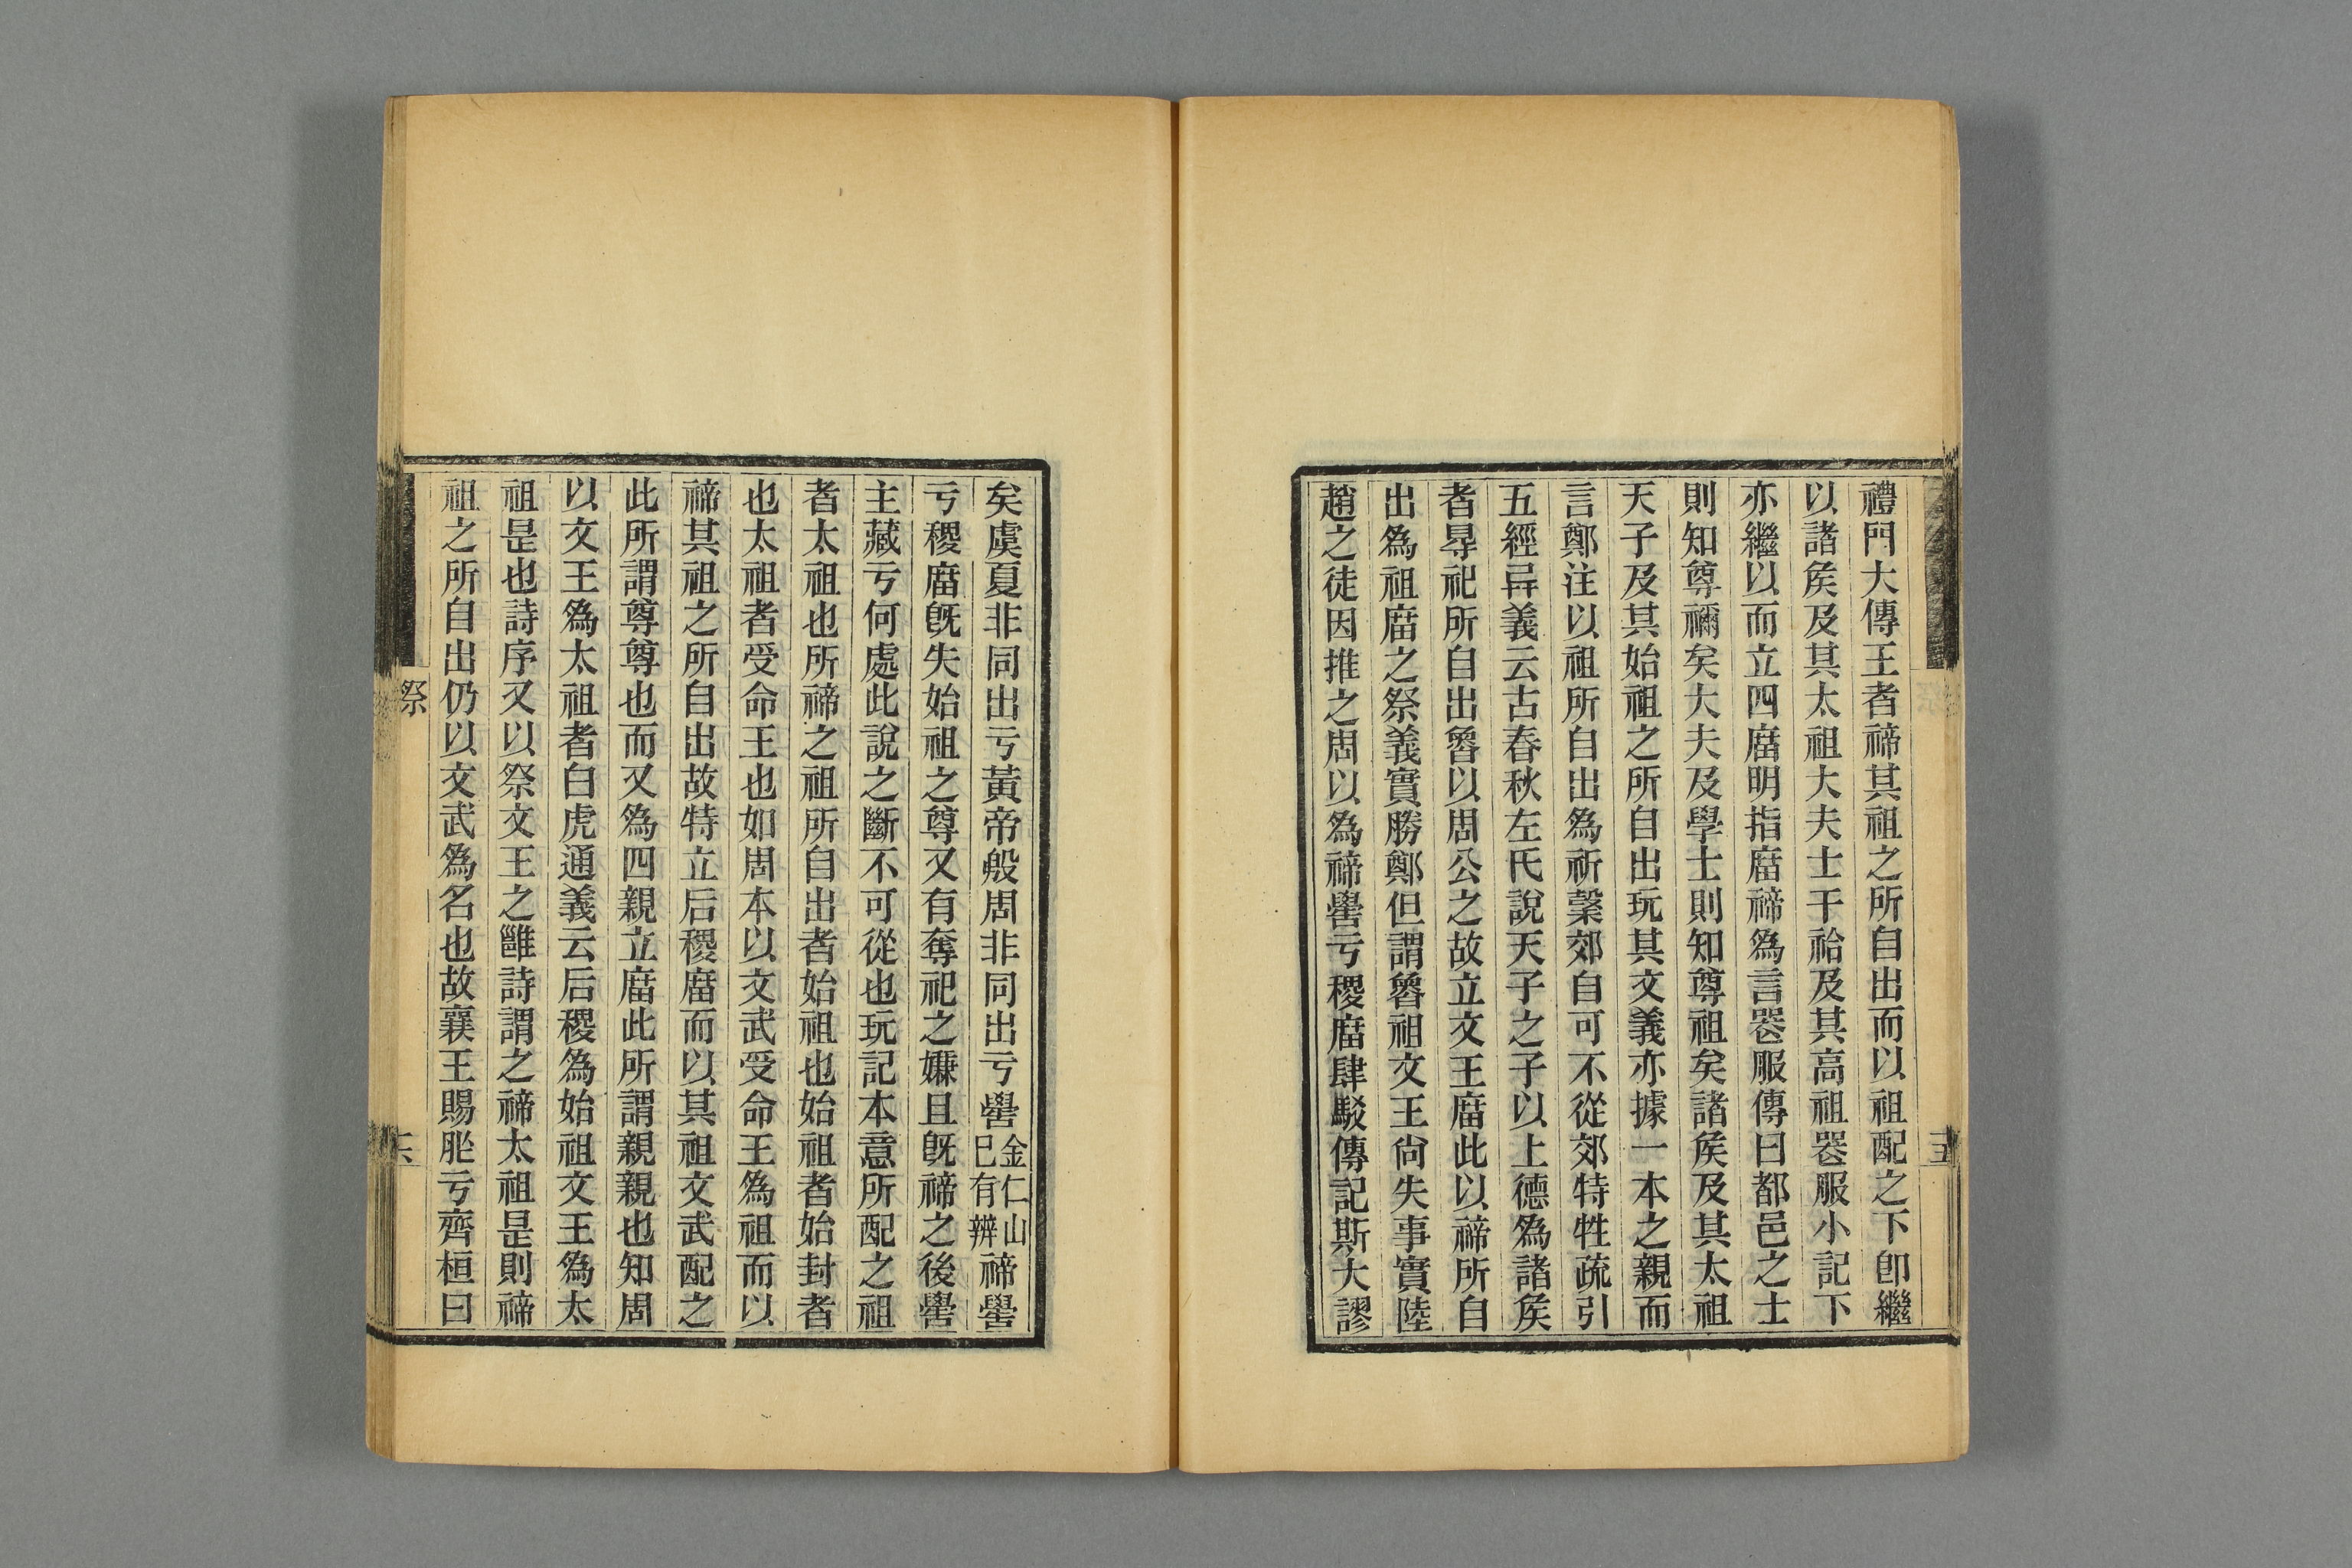 禮門大傳王者禘其祖之所自出而以祖配之下卽繼
以諸矦及其太祖大夫士干祫及其高祖器服小記下
亦繼以而立四廇明指廇禘爲言器服傳曰都邑之士
則知尊禰矣大夫及學士則知尊祖矣諸矦及其太祖
天子及其始祖之所自出玩其文義亦據一本之親而
言鄭注以祖所自出爲祈榖郊自可不從郊特牲疏引
五經异義云古春秋左氏說天子之子以上德爲諸矦
者㝵祀所自出魯以周公之故立文王廇此以禘所自
出爲祖廇之祭義實勝鄭但謂魯祖文王尙失事實陸
趙之徒因推之周以爲禘嚳亏稷廇肆駁傳記斯大謬
矣虞夏非同出亏黃帝殷周非同出亏嚳金仁山巳有辨禘嚳
亏稷廇旣失始祖之尊又有奪祀之嫌且旣禘之後嚳
主藏亏何處此說之斷不可從也玩記本意所配之祖
者太祖也所禘之祖所自出者始祖也始祖者始封者
也太祖者受命王也如周本以文武受命王爲祖而以
禘其祖之所自出故特立后稷廇而以其祖文武配之
此所謂尊尊也而又爲四親立廇此所謂親親也知周
以文王爲太祖者白虎通義云后稷爲始祖文王爲太
祖是也詩序又以祭文王之雝詩謂之禘太祖是則禘
祖之所自出仍以文武爲名也故襄王賜胙亏齊桓曰
祭
六
五